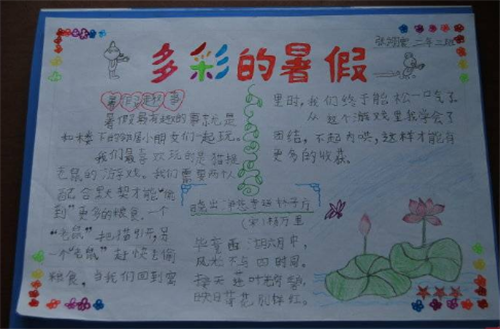 多彩的暑假
二年三班
暑假趣事
暑假最有趣的事就是
和楼下的邻居小朋友们一起玩。
我们最喜欢玩的是猫捉
老鼠的游戏。我们需要两人
配合默契才能“偷
到”更多的粮食。一个
“老鼠”把猫引开,另
一个“老鼠”赶快去偷
粮食,当我们回到窝
里时,我们终于能松一口气了
从这个游戏里我学会了
团结,不起内哄,这样才能有
更多的收获。
晓出净慈寺送林子方
(宋)杨万里
毕竟西湖六月中,
风光不与四时同。
接天莲叶无穷碧,
映日荷花别样红。